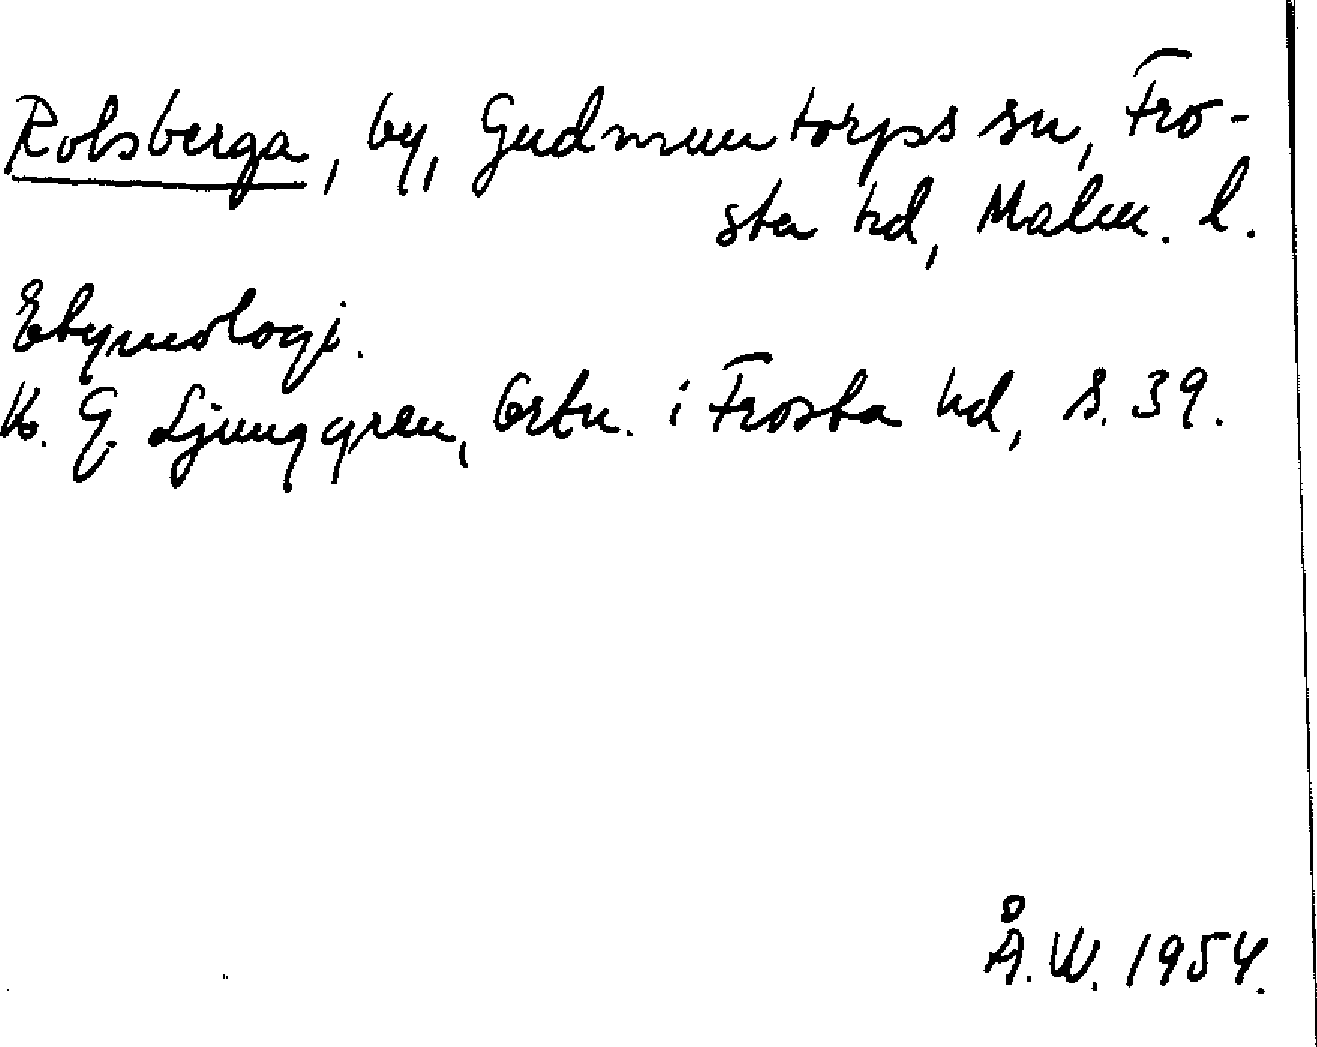 Rolsberga, by, Gudmuntorps sn, Fro-
sta hd, Malm. l.
Etymologi.
K. G. Ljunggren, Ortn. i Frosta hd, s. 39.
Å. W. 1954.